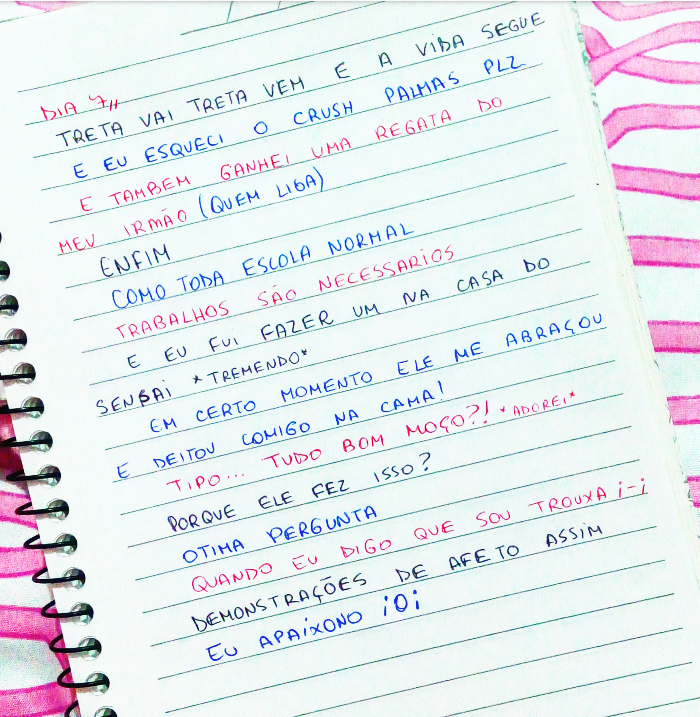 DIA 4,,
TRETA VAI TRETA VEM E A VIDA SEGUE
E EU ESQUECI O CRUSH PALMAS PLZ
E TAMBEM GANHEI UMA REGATA DO
MEU IRMÃO (QUEM LIGA)
ENFIM
COMO TODA ESCOLA NORMAL
TRABALHOS SÃO NECESSARIOS
E EU FUI FAZER UM NA CASA DO
SENPAI *TREMENDO*
EM CERTO MOMENTO ELE ME ABRAÇOU
E DEITOU COMIGO NA CAMA!
TIPO... TUDO BOM MOÇO?! *ADOREI*
PORQUE ELE FEZ ISSO?
OTIMA PERGUNTA
QUANDO EU DIGO QUE SOU TROUXA i-i
DEMONSTRAÇÕES DE AFETO ASSIM
EU APAIXONO iOi